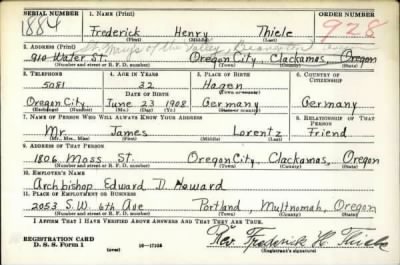 SERIAL NUMBER 1. NAME (Print) ORDER NUMBER
1884 Frederick Henry Thiele 928
(First) (Middle) (Last)
St. Mary's of the Valley, Beaverton
2. ADDRESS (Print)
910 Water St. Oregon City, Clackamas, Oregon
(Number and street or R. F. D. number) (Town) (County) (State)
3. TELEPHONE 4. AGE IN YEARS 5. PLACE OF BIRTH 6. COUNTRY OF CITIZENSHIP
5081 32 Hagen
DATE OF BIRTH
Oregon City June 23 1908 Germany Germany
(Exchange) (Number) (Mo.) (Day) (Yr.) (State or country)
7. NAME OF PERSON WHO WILL ALWAYS KNOW YOUR ADDRESS 8. RELATIONSHIP OF THAT PERSON
Mr. James Lorentz Friend
(Mr., Mrs., Miss) (First) (Middle) (Last)
9. ADDRESS OF THAT PERSON
1806 Moss St. Oregon City, Clackamas, Oregon
(Number and street or R. F. D. number) (Town) (County) (State)
10. EMPLOYER'S NAME
Archbishop Edward D. Howard
11. PLACE OF EMPLOYMENT OR BUSINESS
2053 S.W. 6th Ave Portland, Multnomah, Oregon
(Number and street or R. F. D. number) (Town) (County) (State)
I AFFIRM THAT I HAVE VERIFIED ABOVE ANSWERS AND THAT THEY ARE TRUE.
Rev. Frederick H. Thiele
REGISTRATION CARD
D. S. S. Form 1 (over) 16-17105 (Registrant's signature)